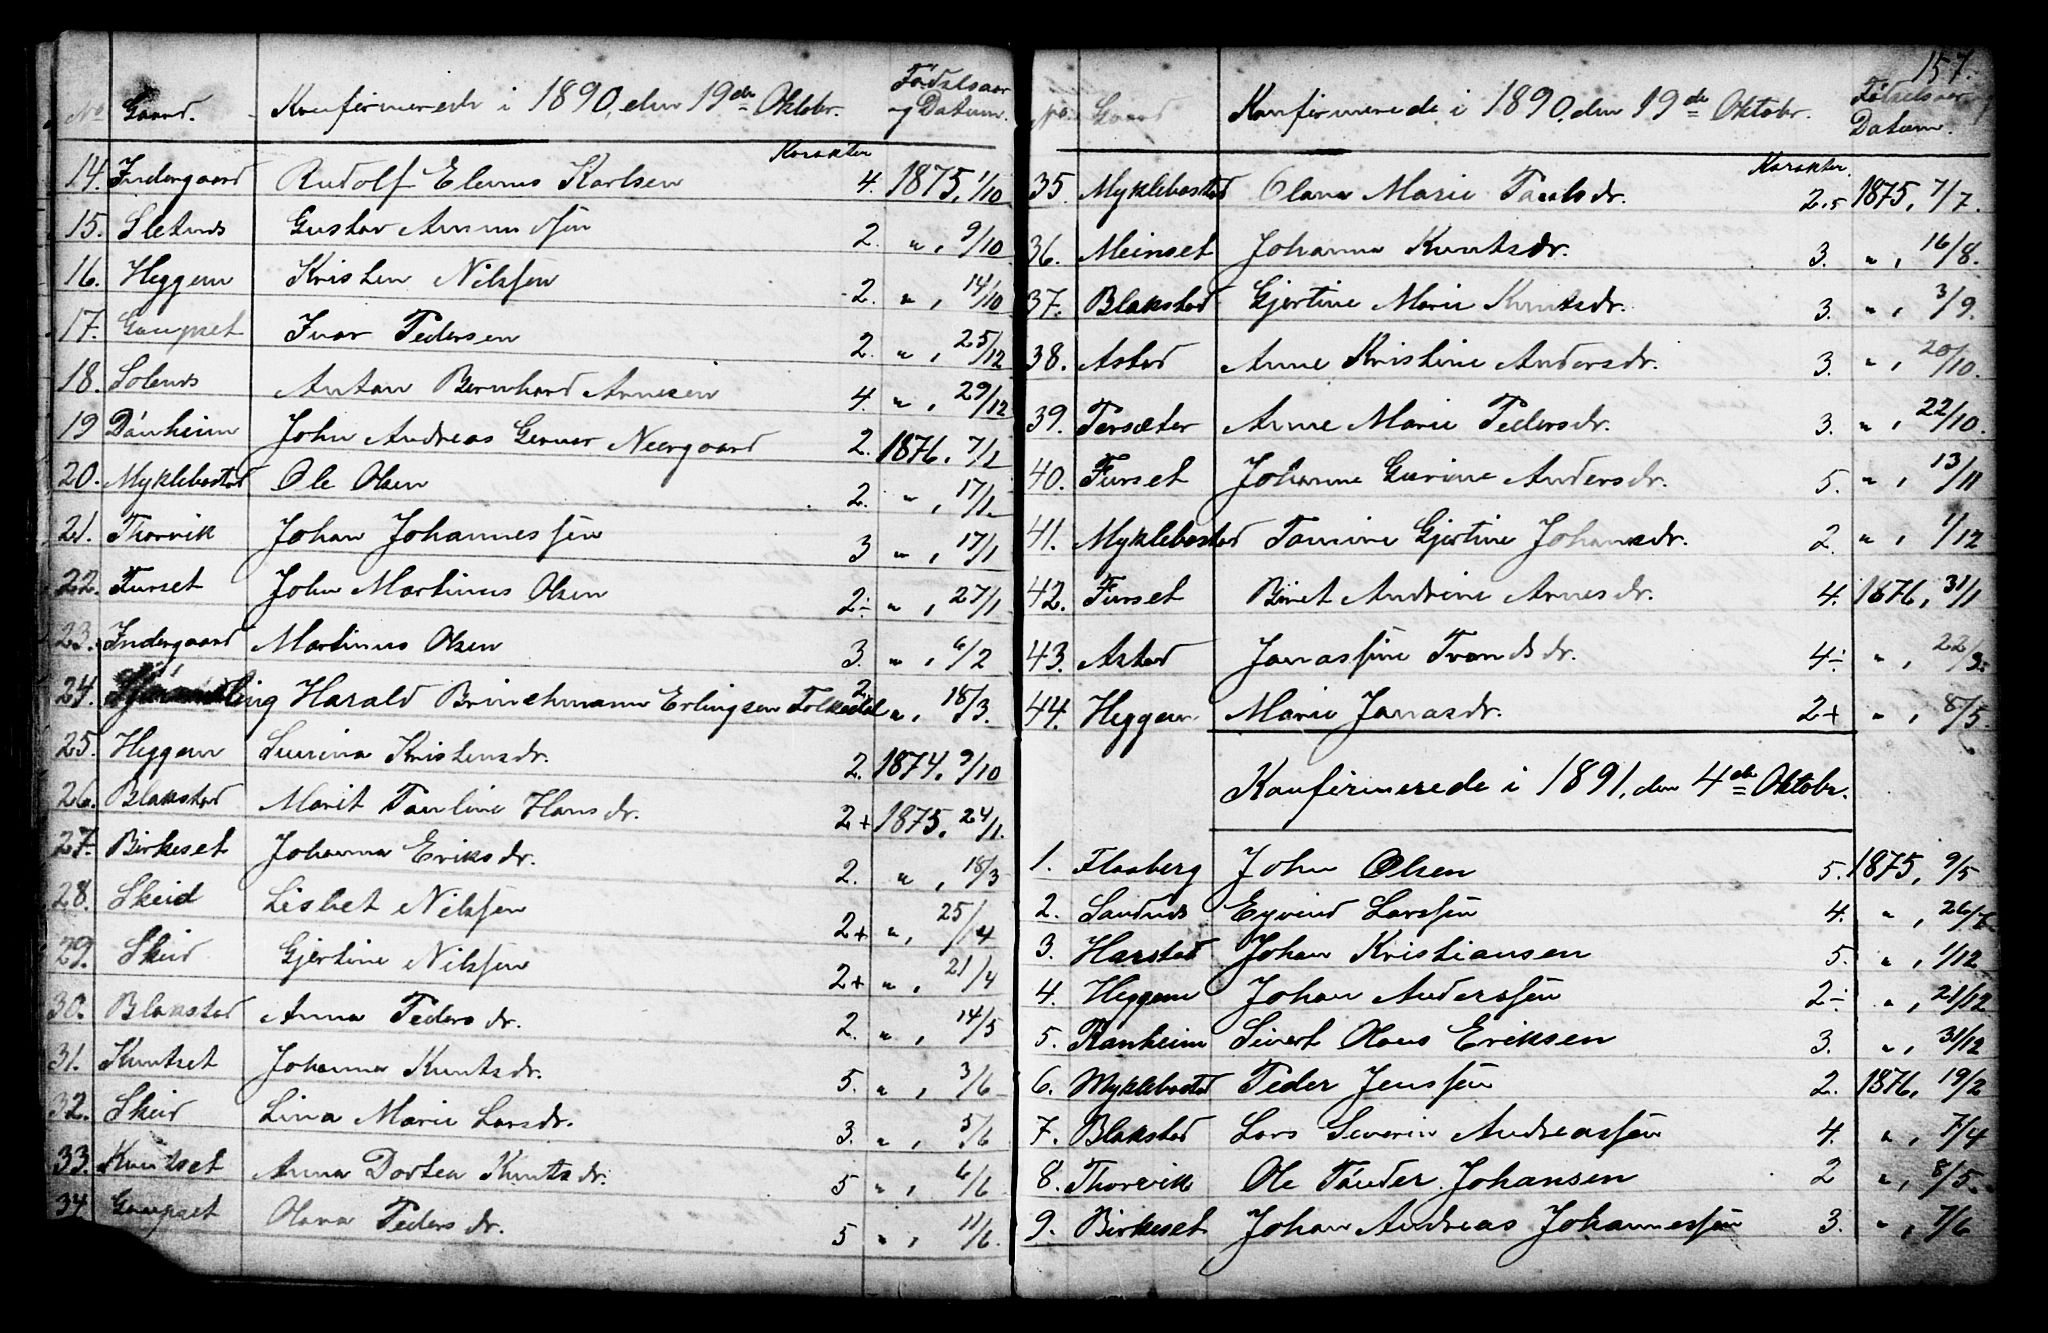 No Gaard. Konfirmerede i 1890, den 19de Oktobr. Fødselsaar
og Datum.
Karakter
14. Indergaard Rudolf Elenus Karlsen 4. 1875, 1/10
15. Sletnæs Gustav Amundsen 2. „ , 9/10
16. Heggem Kristen Nilssen 2. „ , 14/10
17. Gaupset Ivar Pedersen 2. „ , 25/12
18. Solenæs Anton Bernhard Arnesen 4. „ , 29/12
19 Dønheim John Andreas Gerner Neergaard 2. 1876, 7/1
20. Myklebostad Ole Olsen 2. „ , 17/1
21. Thorvik Johan Johannessen 3 „ , 17/1
22. Furset John Martinus Olsen 2÷ „ , 27/1
23. Indergaard Martinus Olsen 3. „ , 6/2
24. Harald Brinchmann Erlingsen Folkedal 2. „ , 18/3.
25. Heggem Surina Kristensdr. 2. 1874, 9/10
26. Blakstad Marit Pauline Hansdr. 2+ 1875, 24/1.
27. Birkeset Johanna Eriksdr. 2. „ , 18/3
28. Skeid Lisbet Nilssen 2+ „ , 25/4
29. Skeid Gjertine Nilssen 2+ „ , 21/4
30. Blakstad Anna Pedersdr. 2. „ , 14/5
31. Knutset Johanna Knutsdr. 5. „ , 3/6
32. Skeid Lina Marie Larsdr. 3. „ , 5/6
33. Knutset Anna Dortea Knutsdr. 5 „ , 6/6
34 Gaupset Olava Pedersdr. 5 „ , 11/6.
157.
No. Gaard Konfirmerede i 1890, den 19de Oktobr. Fødselsaar
Datum.
Karakter.
35. Myklebostad Olava Marie Paulsdr. 2,5 1875, 7/7.
36. Meinset Johanna Knutsdr. 3. „ , 16/8.
37. Blakstad Gjertine Marie Knutsdr. 3. „ , 3/9.
38. Astad Anne Kristine Andersdr. 3. „ , 20/10.
39. Torsæter Anne Marie Pedersdr. 3. „ , 22/10.
40. Furset Johanne Gurine Andersdr. 5. „ , 13/11
41. Myklebostad Paurine Gjertine Johansdr. 2. „ , 1/12
42. Furset Beret Andrine Arnesdr. 4. 1876, 31/1
43. Astad Jonassine Trondsdr. 4÷ „ , 22/3.
44. Heggem Marie Jonasdr. 2+ „ , 8/5.
Konfirmerede i 1891, den 4de Oktobr.
1. Flaaberg John Olsen 5. 1875, 9/5
2. Sandnæs Eyvind Larssen 4. „ , 26/6
3. Harstad Johan Kristiansen 5. „ , 1/12
4. Heggem Johan Anderssen 2÷ „ , 21/12
5. Ranheim Sivert Olaus Eriksen 3. „ , 31/12
6. Myklebostad Peder Jenssen 2. 1876, 19/2
7. Blakstad Lars Severin Andreassen 4. „ , 7/4
8. Thorvik Ole Tønder Johansen 2 „ , 8/5.
9. Birkeset Johan Andreas Johannessen 3. „ , 7/6